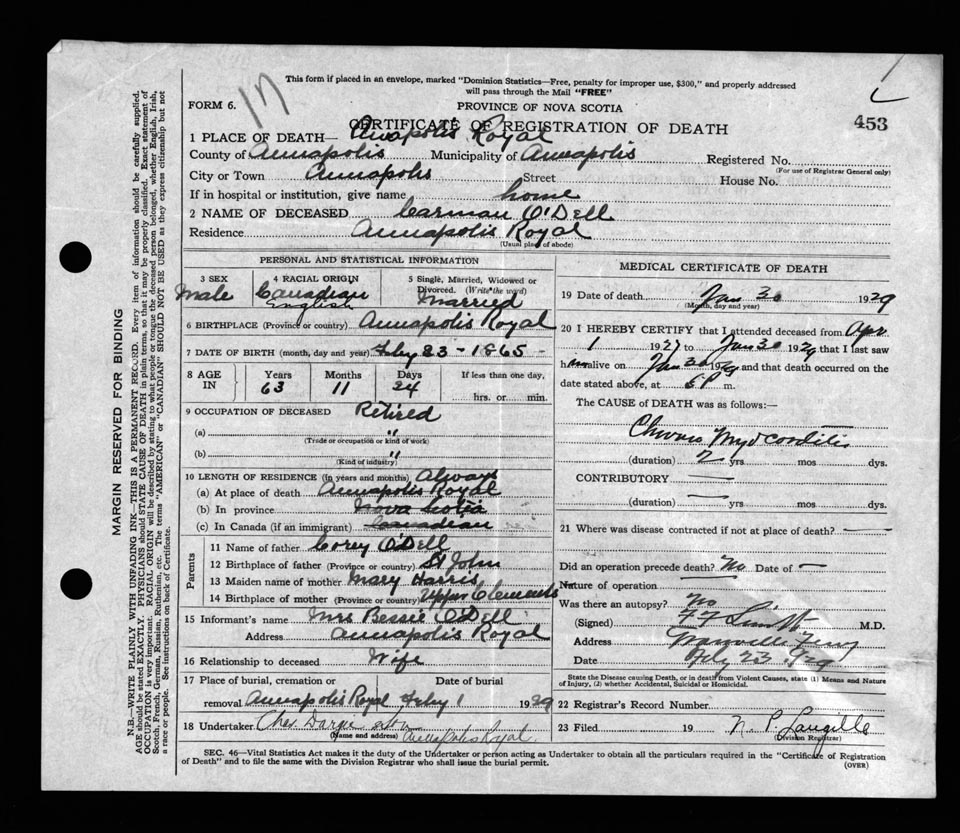 This form if placed in an envelope, marked "Dominion Statistics—Free, penalty for improper use, $300," and properly addressed
will pass through the Mail "FREE"
FORM 6.
17
PROVINCE OF NOVA SCOTIA
CERTIFICATE OF REGISTRATION OF DEATH
453
1 PLACE OF DEATH— Anapolis Royal
County of Annapolis Municipality of Annapolis Registered No.
(For use of Registrar General only)
City or Town Annapolis Street House No.
If in hospital or institution, give name home
2 NAME OF DECEASED Carman O'Dell
Residence Annapolis Royal
(Usual place of abode)
PERSONAL AND STATISTICAL INFORMATION
3 SEX 4 RACIAL ORIGIN 5 Single, Married, Widowed or
Divorced. (Write the word)
Male Canadian English Married
6 BIRTHPLACE (Province or country) Annapolis Royal
7 DATE OF BIRTH (month, day and year) Feby 23 - 1865 -
8 AGE IN Years Months Days If less than one day,
63 11 24 hrs. or min.
9 OCCUPATION OF DECEASED Retired
(a) "
(Trade or occupation or kind of work)
(b) "
(Kind of industry)
10 LENGTH OF RESIDENCE (in years and months) Always
(a) At place of death Annapolis Royal
(b) In province Nova Scotia
(c) In Canada (if an immigrant) Canadian
Parents
11 Name of father Corey O'Dell
12 Birthplace of father (Province or country) St John
13 Maiden name of mother Mary Harris
14 Birthplace of mother (Province or country) Upper Clements
15 Informant's name Mrs Bessie O'Dell
Address Annapolis Royal
16 Relationship to deceased Wife
17 Place of burial, cremation or Date of burial
removal Annapolis Royal Feby 1 1929
18 Undertaker Chas Dargie
(Name and address) Annapolis Royal
MEDICAL CERTIFICATE OF DEATH
19 Date of death Jan 30 1929
(Month, day and year)
20 I HEREBY CERTIFY that I attended deceased from Apr
1 1927 to Jan 30 1929 that I last saw
him alive on Jan 30 1929 and that death occurred on the
date stated above, at 5 P m.
The CAUSE of DEATH was as follows:—
Chronic Myocarditis
(duration) 2 yrs mos dys.
CONTRIBUTORY —
(duration) — yrs mos dys.
21 Where was disease contracted if not at place of death? —
Did an operation precede death? No Date of —
Nature of operation
Was there an autopsy? No
(Signed) M.D.
Address Granville Ferry
Date Feby 23 1929
State the Disease causing Death, or in death from Violent Causes, state (1) Means and Nature
of Injury, (2) whether Accidental, Suicidal or Homicidal.
22 Registrar's Record Number
23 Filed 19 N. P. Langille
(Division Registrar)
SEC. 46—Vital Statistics Act makes it the duty of the Undertaker or person acting as Undertaker to obtain all the particulars required in the "Certificate of Registration
of Death" and to file the same with the Division Registrar who shall issue the burial permit.
(OVER)
MARGIN RESERVED FOR BINDING
N.B.—WRITE PLAINLY WITH UNFADING INK—THIS IS A PERMANENT RECORD. Every item of information should be carefully supplied.
AGE should be stated EXACTLY. PHYSICIANS should STATE CAUSE OF DEATH in plain terms, so that it may be properly classified. Exact statement of
OCCUPATION is very important. RACIAL ORIGIN will be described by stating to what people or tongue the deceased person belonged, whether English, Irish,
Scotch, French, German, Russian, Ruthenian, etc. The terms "AMERICAN" or "CANADIAN" SHOULD NOT BE USED as they express citizenship but not
a race or people. See instructions on back of Certificate.